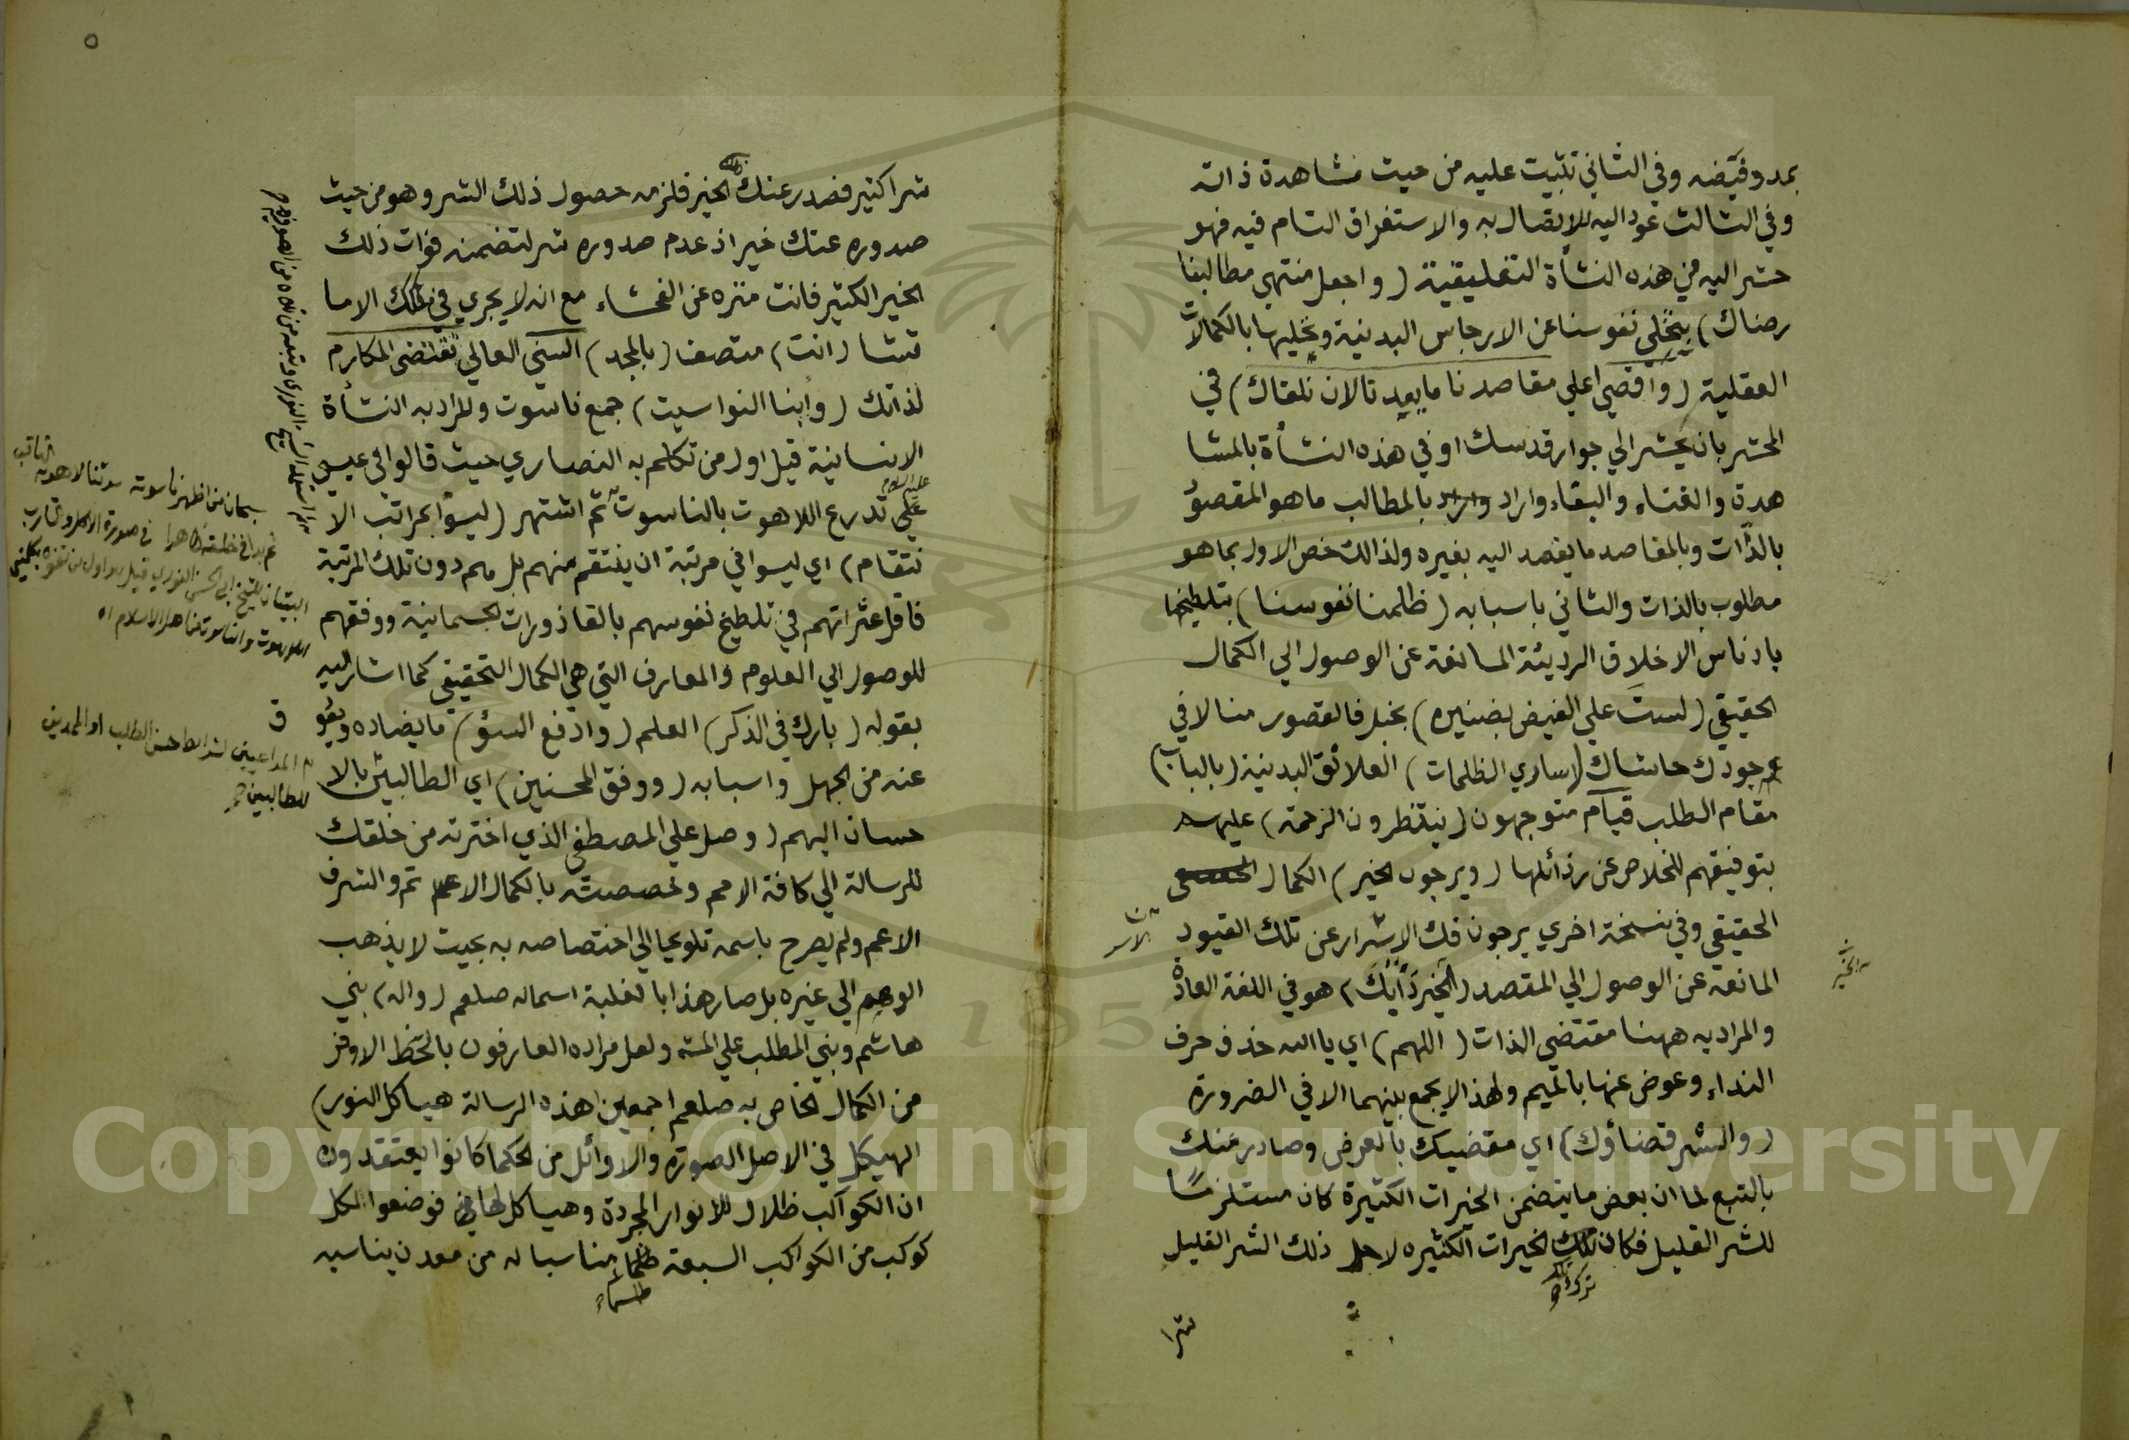 بمد وفيضه وفي الثاني تثبيت عليه من حيث مشاهدة ذاته
وفي الثالث عود اليه للاتصال به والاستغراق التام فيه فهو
حشر اليه في هذه النشأة التعليقية (واجعل منتهي مطالبنا
رضاك) بتخلي نفوسنا عن الارجاس البدنية وتحليها بالكمالات
العقلية (واقصي اعلي مقاصدنا ما يعدنا لان نلقاك) في
المحشر بان يحشر الي جوار قدسك او في هذه النشأة بالمشا
هدة والفناء والبقاء واراد بالمطالب ما هو المقصود
بالذات وبالمقاصد ما يقصد اليه بغيره ولذالك خص الاول بما هو
مطلوب بالذات والثاني باسبابه (ظلمنا نفوسنا) بتلطيخها
بادناس الاخلاق الرديئة المانعة عن الوصول الي الكمال
الحقيقي (لست علي الفيض بضنين) بخيل فالقصور منا لا في
جودك حاشاك (اساري الظلمات) العلائق البدنية (بالباب)
مقام الطلب قيام متوجهون (ينتظرون الرحمة) عليهم
بتوفيقهم للخلاص عن رذائلها (ويرجون الخير) الكمال
الحقيقي وفي نسخة اخري يرجون فك الاسرار عن تلك القيود
المانعة عن الوصول الي المقصد (الخير دأبك) هو في اللغة العادة
والمراد به ههنا مقتضي الذات (اللهم) اي يا الله حذف حرف
النداء وعوض عنها بالميم ولهذا لا يجمع بينهما الا في الضرورة
(والشر قضاؤك) اي مقضيك بالعرض وصادر عنك
بالتبع لما ان بعض ما يتضمن الخيرات الكثيرة كان مستلزما
للشر القليل فكان تلك الخيرات الكثيره لاجل ذلك الشر القليل
ترك
شرا
٥
شرا كثير فصدر عنك الخير فلزمه حصول ذلك الشر وهو من حيث
صدوره عنك خير اذ عدم صدوره شر لتضمنه فوات ذلك
الخير الكثير فانت منزه عن الفحشاء مع انه لا يجري في ملكك الا ما
تشا (انت) متصف (بالمجد) السني العالي تقتضي المكارم
لذاتك (وابنا النواسيت) جمع ناسوت والمراد به النشأة
الانسانية قيل اول من تكلم به النصاري حيث قالوا في عيسي
عليه السلام
تدرع اللاهوت بالناسوت ثم اشتهر (ليسوا بمراتب الا
نتقام) اي ليسوا في مرتبة ان ينتقم منهم بل هم دون تلك المرتبة
فاقل عثراتهم في تلطيخ نفوسهم بالقاذورات الجسمانية ووفقهم
للوصول الي العلوم والمعارف التي هي الكمال التحقيقي كما اشار اليه
بقوله (بارك في الذكر) العلم (وادفع السؤ) ما يضاده ويعو
عنه من الجهل واسبابه (ووفق المحسنين) اي الطالبين بالا
حسان اليهم (وصل علي المصطفي الذي اخترته من خلقك
للرسالة الي كافة الامم وخصصته بالكمال الاتم والشرف
الاعم ولم يصرح باسمه تلويحا الي اختصاصه به بحيث لا يذهب
الوهم الي غيره بل صار هذا بالغلبة اسما له صلعم (واله) بني
هاشم وبني المطلب علي المشه ولعل مراده العارفون بالحظ الاوفر
من الكمال الخاص به صلعم اجمعين (هذه الرسالة هياكل النور)
الهيكل في الاصل الصورة والاوائل من الحكما كانوا يعتقدون
ان الكواكب ظلال للانوار المجردة وهياكل لها فوضعوا لكل
كوكب من الكواكب السبعة مناسبا له من معدن يناسبه
طلسما
سبحان من اظهر ناسوته سر سنا لاهوته الثاقب
ثم بدا في خلقه ظاهرا في صورة الاكل والشارب